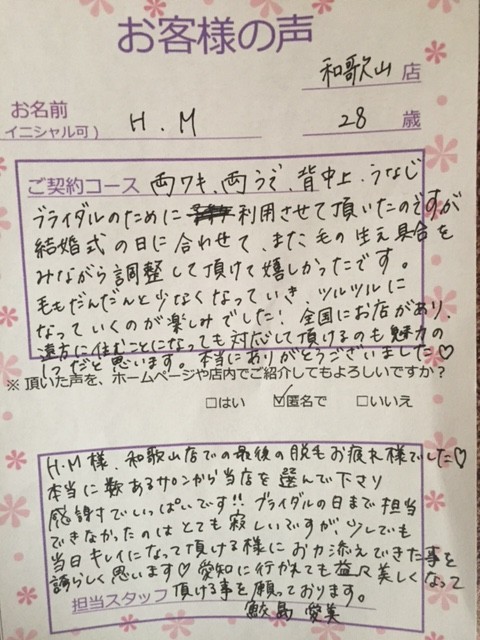 お客様の声
和歌山 店
お名前
イニシャル可） H.M 28 歳
ご契約コース 両ワキ、両うで、背中上、うなじ
ブライダルのために利用させて頂いたのですが
結婚式の日に合わせて、また毛の生え具合を
みながら調整して頂けて嬉しかったです。
毛もだんだんと少なくなっていき、ツルツルに
なっていくのが楽しみでした！全国にお店があり、
遠方に住むことになっても対応して頂けるのも魅力の
1つだと思います。本当にありがとうございました♡
※ 頂いた声を、ホームページや店内でご紹介してもよろしいですか？
□はい ☑匿名で □いいえ
H.M様、和歌山店での最後の脱毛お疲れ様でした♡
本当に数あるサロンから当店を選んで下さり
感謝でいっぱいです!! ブライダルの日まで担当
できなかったのはとても寂しいですが少しでも
当日キレイになって頂ける様にお力添えできた事を
誇らしく思います♡愛知に行かれても益々美しくなって
担当スタッフ 頂ける事を願っております。
鮫島 愛美